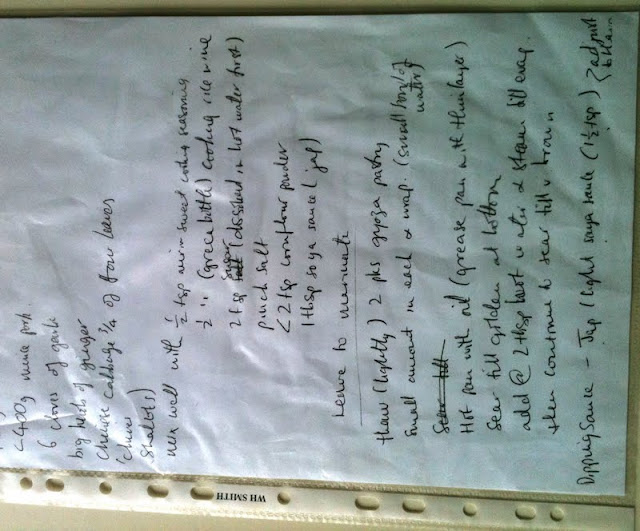 <400g mince pork
6 cloves of garlic
big heads of ginger
Chinese cabbage 1/4 of four leaves
(chives
Shallots)
mix well with 1/2 tsp mirin sweet cooking seasoning
1/2 " (green bottle) cooking rice wine
2 tsp sugar (dissolved in hot water first)
pinch salt
<2 tsp cornflour powder
1 tbsp soya sauce (jap)
Leave to marinate
thaw (lightly) 2 pks gyoza pastry
small amount in each & wrap. (small bowl of
water)
Hot pan with oil (grease pan with thin layer)
Sear till golden at bottom
add @ 2 tbsp hot water & steam till evap.
then continue to sear till v brown
Dipping Sauce - Jap (light soya sauce (1 1/2 tsp)
WH SMITH